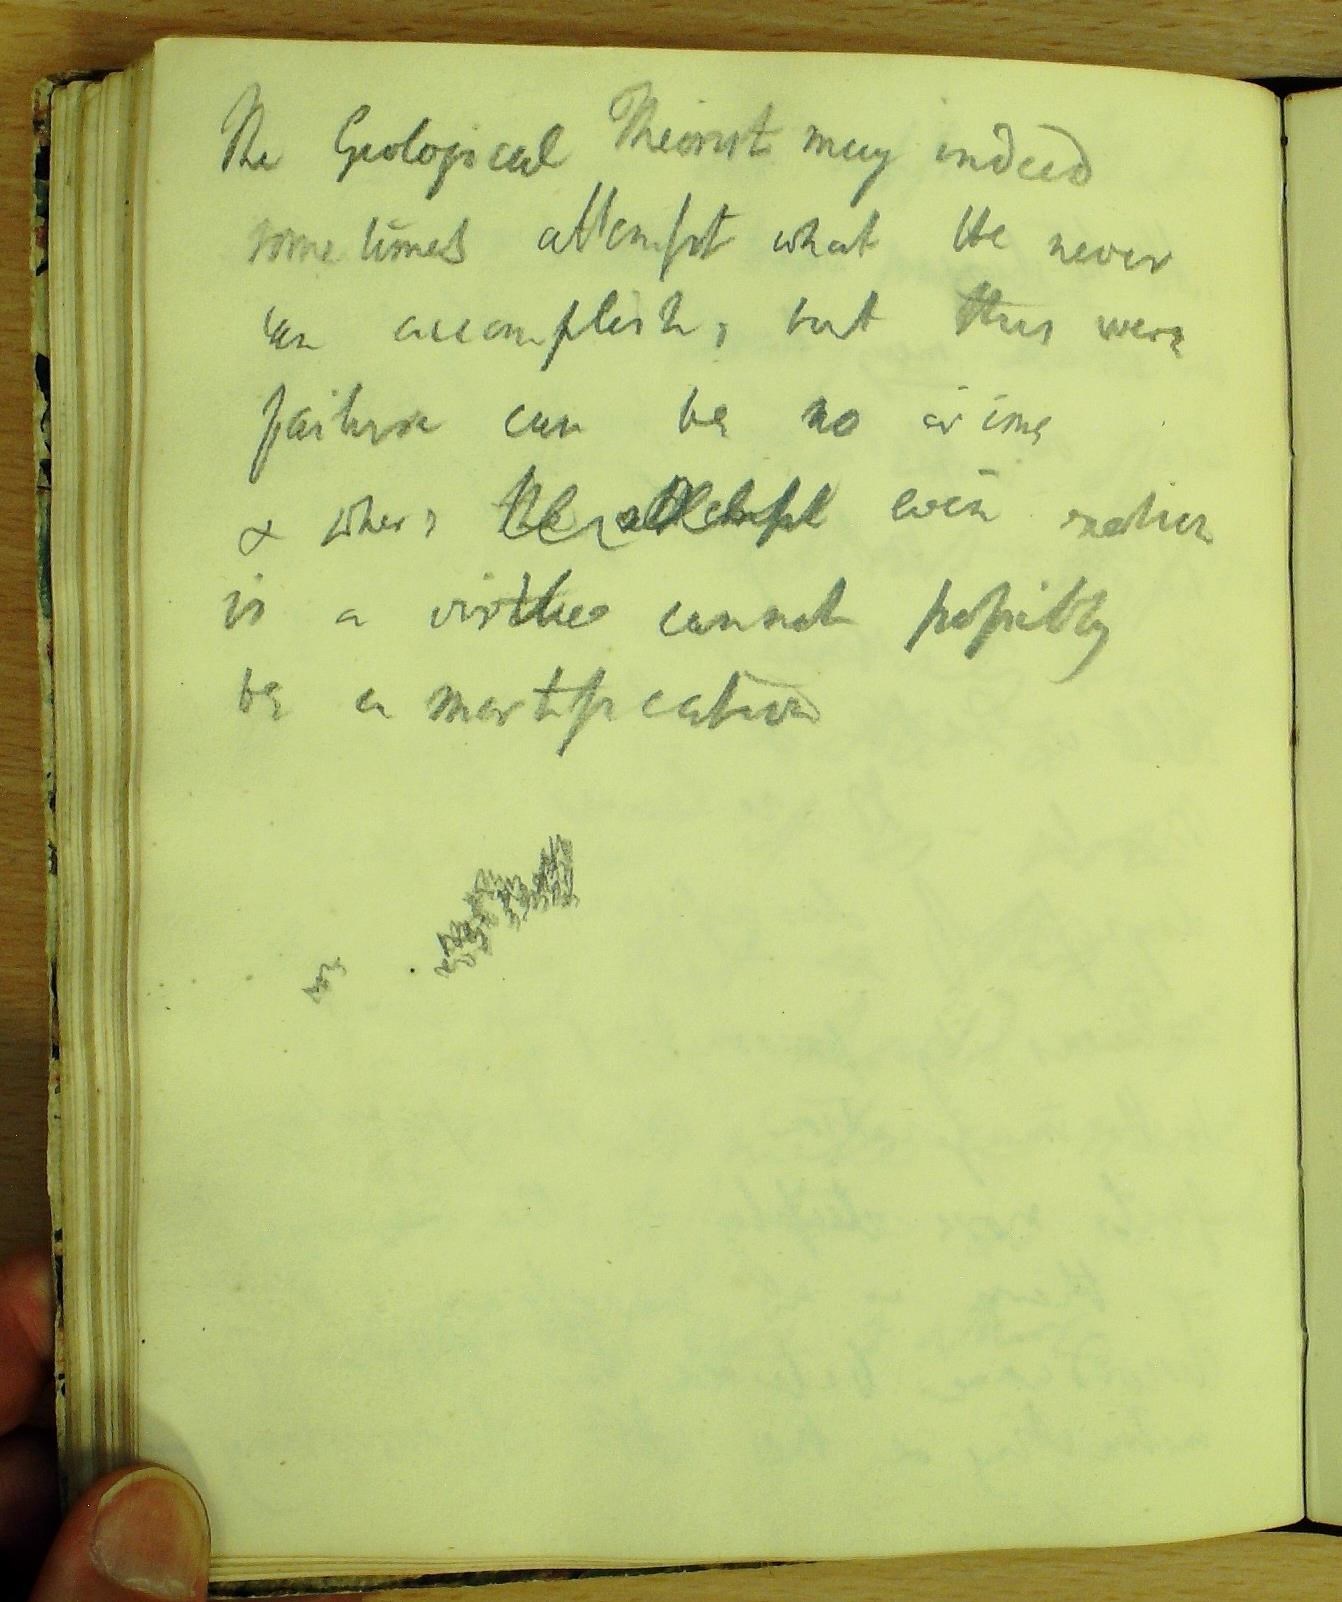 The Geological Theorist may indeed
sometimes attempt what He never
can accomplish, but this mere
failure can be no crime
& where the attempt even
is a virtue cannot possibly
be a mortification